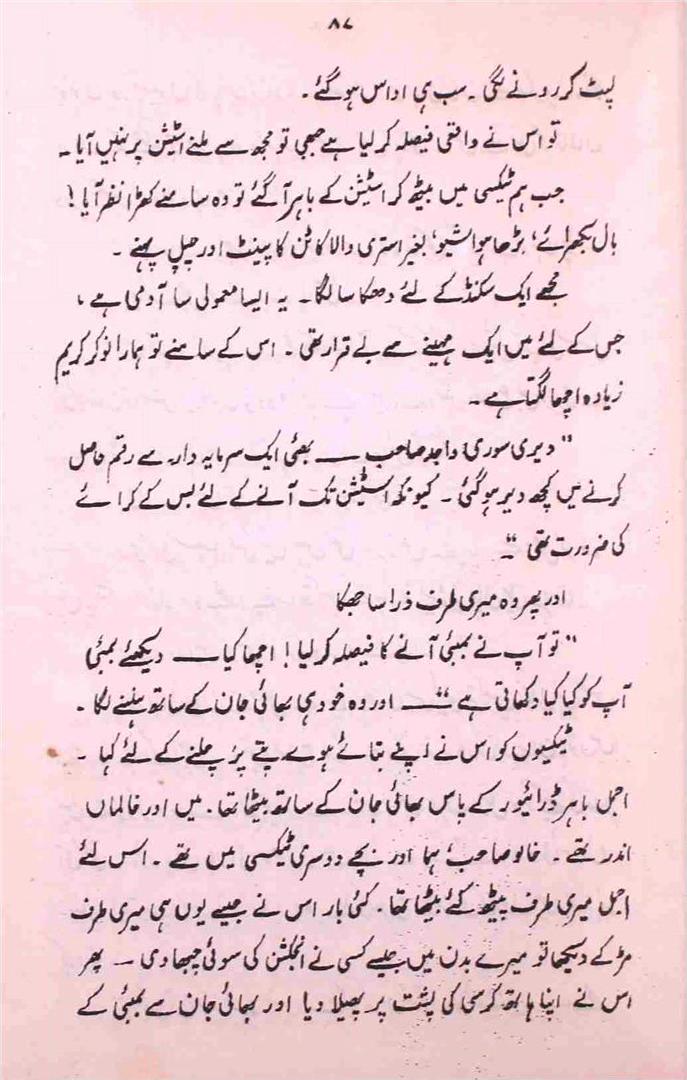 ۸۷
لپٹ کر رونے لگی ۔ سب ہی اداس ہو گئے ۔
تو اس نے واقعی فیصلہ کر لیا ہے جبھی تو مجھ سے ملنے اسٹیشن پر نہیں آیا ۔
جب ہم ٹیکسی میں بیٹھ کر اسٹیشن کے باہر آ گئے تو وہ سامنے کھڑا نظر آیا !
بال بکھرائے ، بڑھا ہوا شیو ، بغیر استری والا کاٹن کا پینٹ اور چپل پہنے ۔
مجھے ایک سکنڈ کے لئے دھکا سا لگا ۔ یہ ایسا معمولی سا آدمی ہے ،
جس کے لئے میں ایک مہینے سے بے قرار تھی ۔ اس کے سامنے تو ہمارا نوکر کریم
زیادہ اچھا لگتا ہے ۔
" ویری سوری واجد صاحب ــــ بھئی ایک سرمایہ دار سے رقم حاصل
کرنے میں کچھ دیر ہو گئی ۔ کیونکہ اسٹیشن تک آنے کے لئے بس کے کرائے
کی ضرورت تھی ۔"
اور پھر وہ میری طرف ذرا سا جھکا
" تو آپ نے بمبئی آنے کا فیصلہ کر لیا ! اچھا کیا ــــ دیکھئے بمبئی
آپ کو کیا کیا دکھاتی ہے " ــــ اور وہ خود ہی بھائی جان کے ساتھ ہنسنے لگا ۔
ٹیکسیوں کو اس نے اپنے بتائے ہوے پتے پر چلنے کے لئے کہا ۔
اجمل باہر ڈرائیور کے پاس بھائی جان کے ساتھ بیٹھا تھا ۔ میں اور خالہ ماں
اندر تھے ۔ خالو صاحب ، ہما اور بچے دوسری ٹیکسی میں تھے ۔ اس لئے
اجمل میری طرف پیٹھ کئے بیٹھا تھا ۔ کئی بار اس نے جیسے یوں ہی میری طرف
مڑ کے دیکھا تو میرے بدن میں جیسے کسی نے انجکشن کی سوئی چبھا دی ـــ پھر
اس نے اپنا ہاتھ کرسی کی پشت پر پھیلا دیا اور بھائی جان سے بمبئی کے